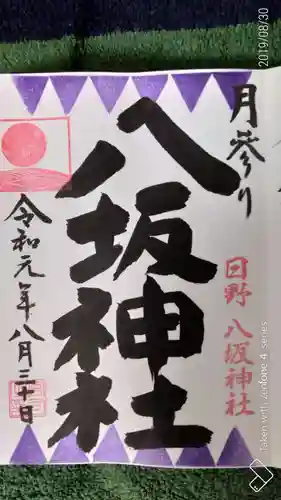 月参り
八坂神社
日野 八坂神社
令和元年八月三十日
2019/08/30
Taken with Zenfone 4 series